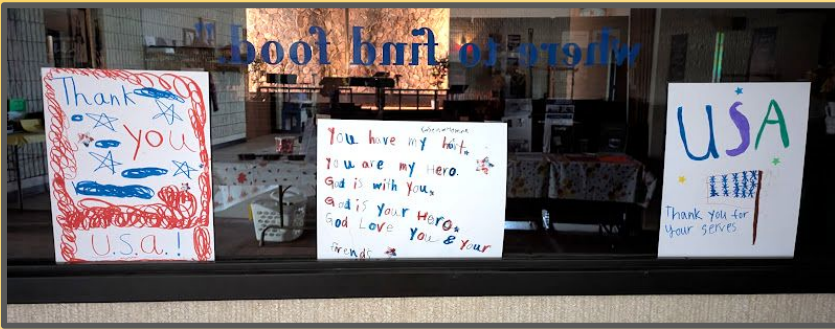 where to find food."
Thank
you
U.S.a.!
You have my hart.
You are my Hero.
God is with You,
God is Your Hero.
God Love You & Your
Firends
USA
Thank you for
your serves